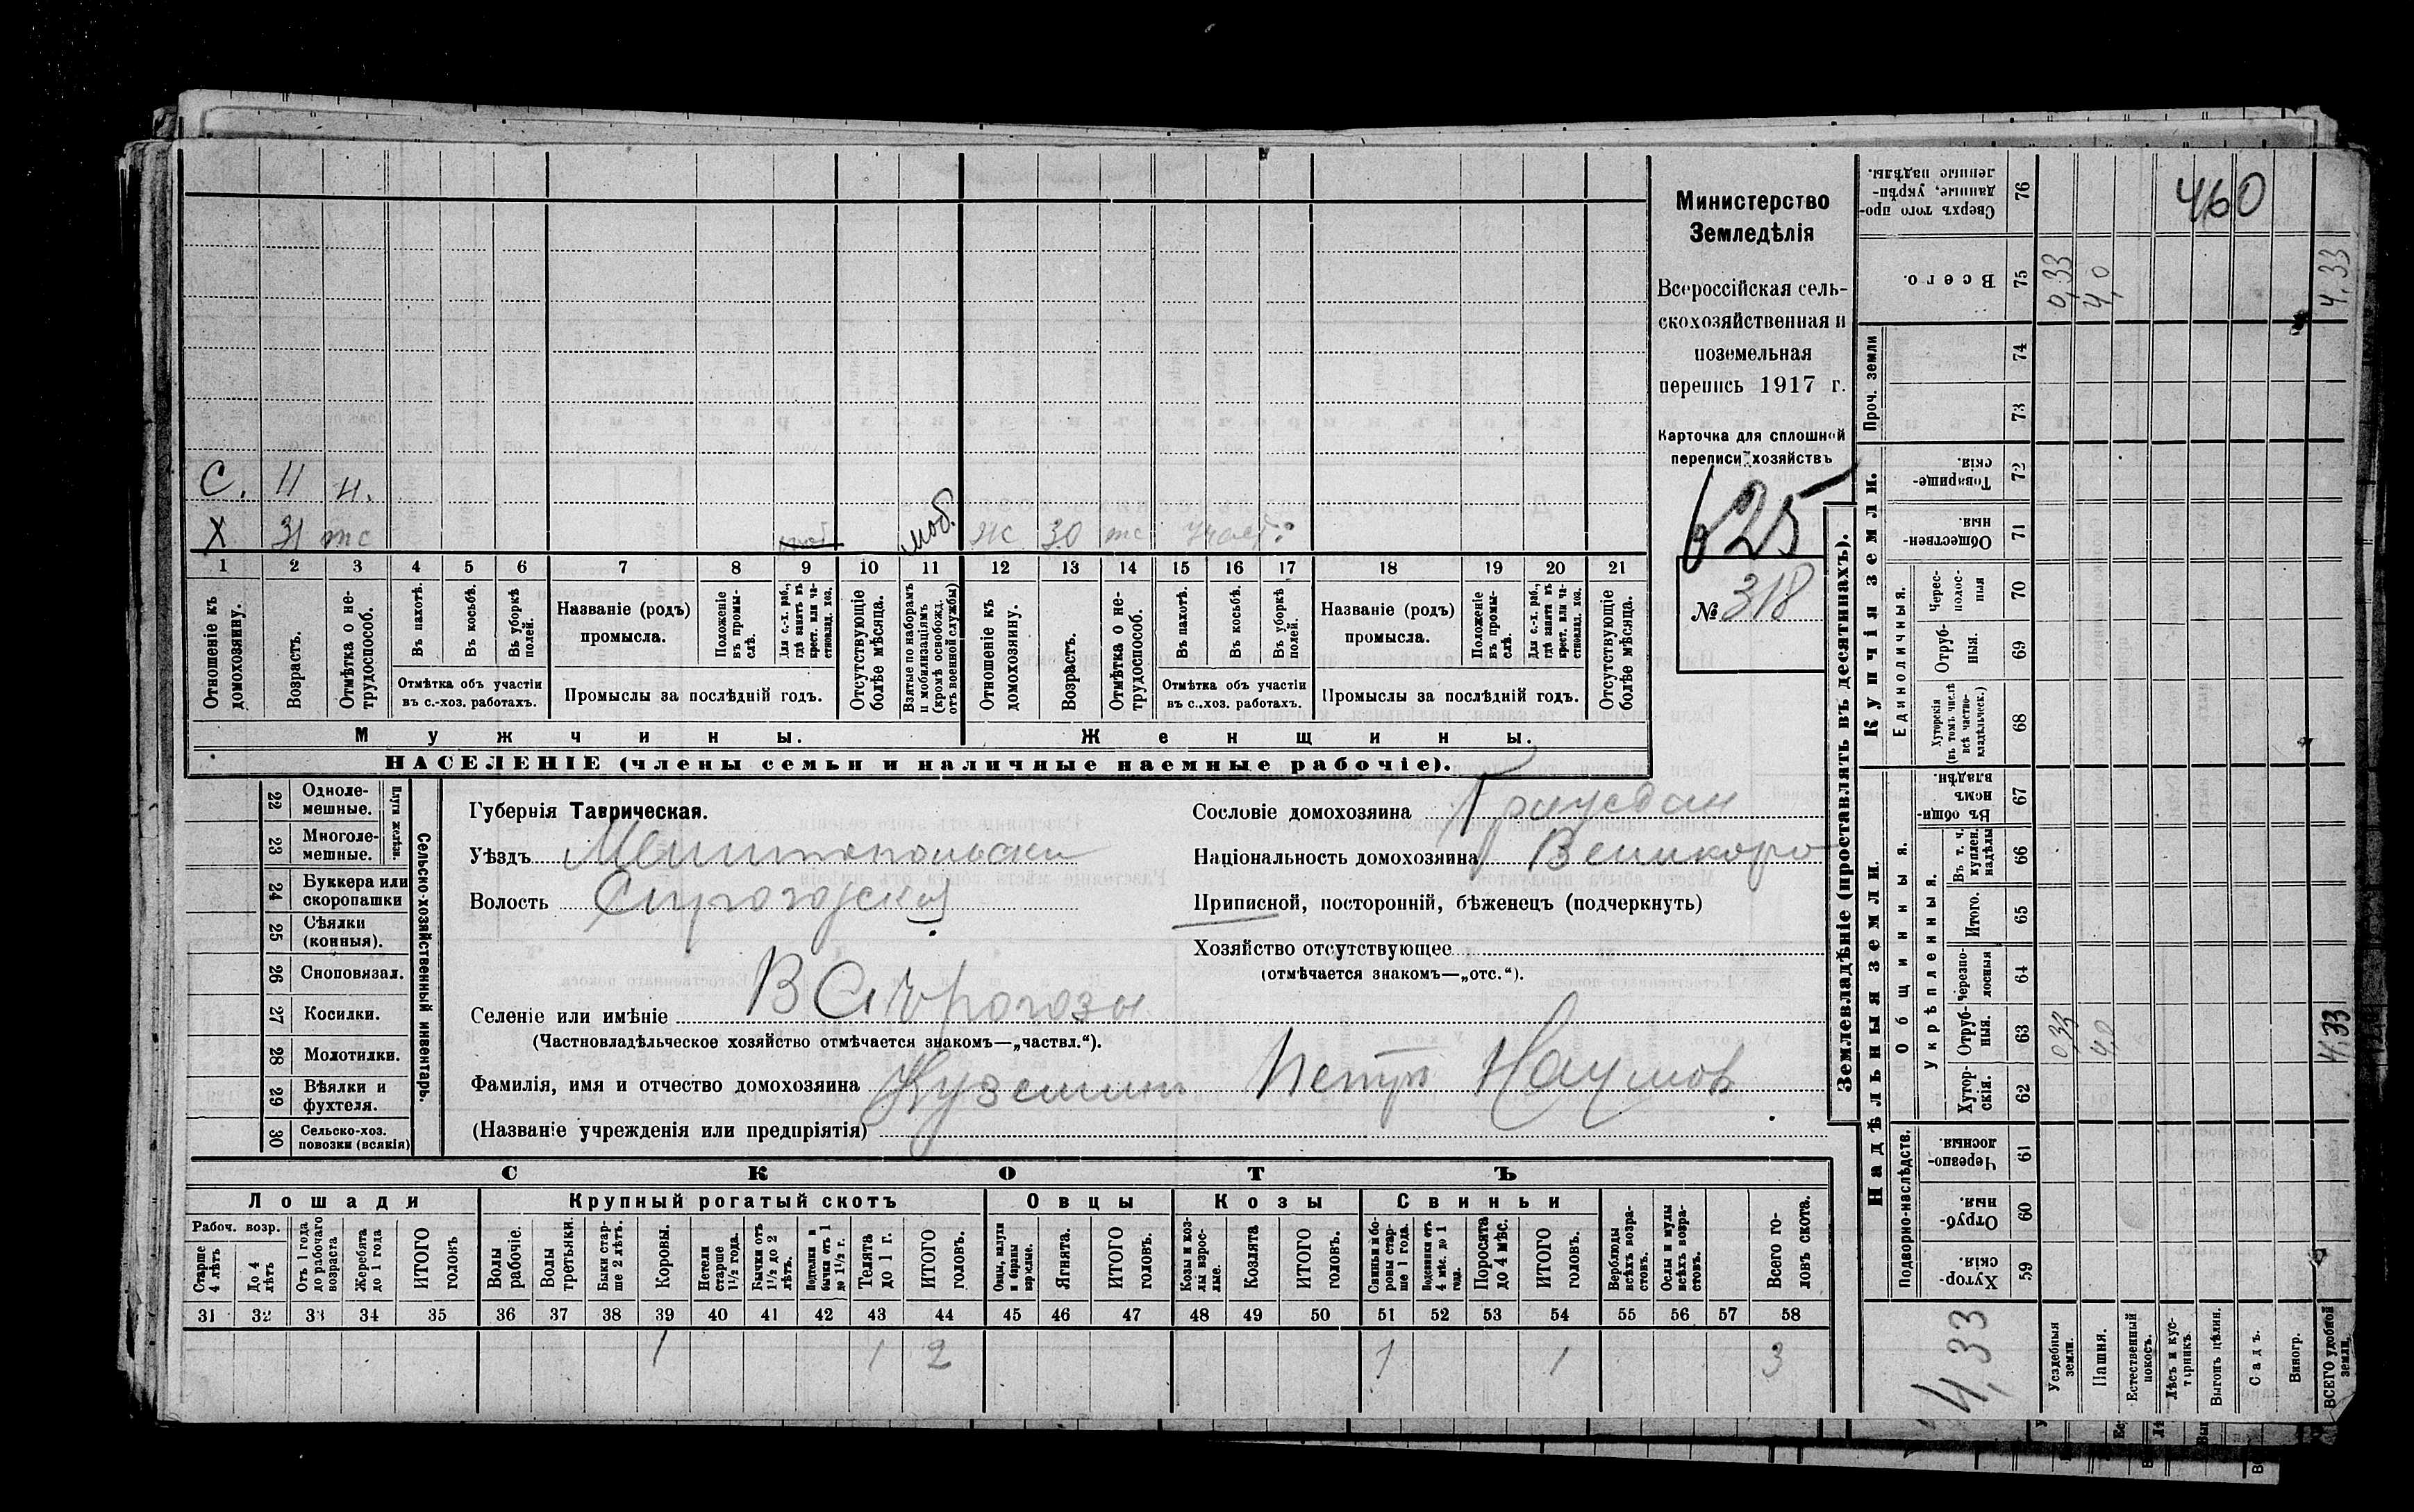 Министерство
Земледѣлія
Всероссійская сель-
скохозяйственная и
поземельная
перепись 1917 г.
Карточка для сплошной
переписи хозяйствъ
625
№ 318
460
С. 11 н.
Х 31 тс моб. Ж 30 тс
1 2 3 4 5 6 7 8 9 10 11 12 13 14 15 16 17 18 19 20 21
Отношеніе къ домохозяину.
Возрастъ.
Отмѣтка о не-трудоспособ.
Въ пахотѣ.
Въ косьбѣ.
Въ уборкѣ полей.
Отмѣтка объ участіи
въ с.-хоз. работахъ.
Названіе (родъ)
промысла.
Положеніе въ промы-слѣ.
Для с.-х. раб., гдѣ занятъ въ крест. или ча-стновлад. хоз.
Промыслы за послѣдній годъ.
Отсутствующіе болѣе мѣсяца.
Взятые по наборамъ и мобилизаціямъ (кромѣ освобожд. отъ военной службы)
Отношеніе къ домохозяину.
Возрастъ.
Отмѣтка о не-трудоспособ.
Въ пахотѣ.
Въ косьбѣ.
Въ уборкѣ полей.
Отмѣтка объ участіи
въ с.-хоз. работахъ.
Названіе (родъ)
промысла.
Положеніе въ промы-слѣ.
Для с.-х. раб., гдѣ занята въ крест. или ча-стновлад. хоз.
Промыслы за послѣдній годъ.
Отсутствующіе болѣе мѣсяца.
Мужчины.
Женщины.
НАСЕЛЕНІЕ (члены семьи и наличные наемные рабочіе).
Сельско-хозяйственный инвентарь.
Плуги желѣз.
22 Одноле-мешные.
23 Многоле-мешные.
24 Буккера или скоропашки
25 Сѣялки (конныя).
26 Сноповязал.
27 Косилки.
28 Молотилки.
29 Вѣялки и фухтеля.
30 Сельско-хоз. повозки (всякія)
Губернія Таврическая.
Уѣздъ Мелитопольски
Волость Сирогозская
Селеніе или имѣніе В Сирогозы
(Частновладѣльческое хозяйство отмѣчается знакомъ—„частвл.“).
Фамилія, имя и отчество домохозяина Куземинъ Петръ Наумов
(Названіе учрежденія или предпріятія)
Сословіе домохозяина
Національность домохозяина Великоро
Приписной, посторонній, бѣженецъ (подчеркнуть)
Хозяйство отсутствующее
(отмѣчается знакомъ—„отс.“).
СКОТЪ
Лошади
Крупный рогатый скотъ
Овцы
Козы
Свиньи
Рабоч. возр.
Старше 4 лѣтъ
До 4 лѣтъ
Отъ 1 года до рабочаго возраста
Жеребята до 1 года
ИТОГО головъ
Волы рабочіе.
Волы третьяки.
Быки стар-ше 2 лѣтъ.
Коровы.
Нетели старше 1½ года.
Бычки отъ 1½ до 2 лѣтъ.
Телята до 1 г.
ИТОГО головъ.
Овцы, валухи и бараны взрослые.
Ягнята.
ИТОГО головъ.
Козы и коз-лы взрос-лые.
Козлята
ИТОГО головъ.
Свиньи и бо-ровы стар-ше 1 года.
Подсвинки отъ 4 мѣс. до 1 года.
Поросята до 4 мѣс.
ИТОГО головъ.
Верблюды всѣхъ возра-стовъ.
Ослы и мулы всѣхъ возра-стовъ.
Всего го-ловъ скота.
31 32 33 34 35 36 37 38 39 40 41 42 43 44 45 46 47 48 49 50 51 52 53 54 55 56 57 58
1 1 2 1 1 3
Землевладѣніе (проставлять въ десятинахъ).
Купчія земли.
Надѣльныя земли.
Сверхъ того про-данные, укрѣп-ленные надѣлы. 76
Всего. 75 0,33 4,0 4,33
Проч. земли 74 73
Товарище-скія. 72
Обществен-ныя 71
Единоличныя.
Черес-полос-ныя 70
Отруб-ныя. 69
Хуторскія (въ томъ числѣ всѣ частно-владѣльческ.) 68
Общинныя.
Въ общин-номъ владѣн. 67
Укрѣпленныя.
Въ т. ч. куплен. надѣлы 66
Итого. 65
Черезпо-лосныя 64
Отруб-ныя. 63 0,33 4,0 4,33
Хутор-скія. 62
Подворно-наслѣдств.
Черезпо-лосныя. 61
Отруб-ныя. 60
Хутор-скія. 59
4,33
Усадебныя земли.
Пашня.
Естественный покосъ.
Лѣсъ и кус-тарникъ.
Выгонъ цѣлин.
Садъ.
Виногр.
ВСЕГО удобной земли.